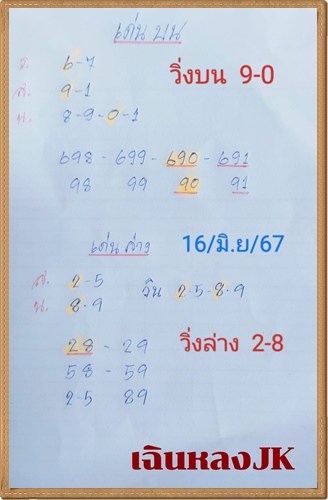 เด่น บน
ร. 6-7
ส. 9-1
น. 8-9-0-1
วิ่งบน 9-0
698 - 699 - 690 - 691
98 99 90 91
เด่น ล่าง
16/มิ.ย/67
ส. 2-5
น. 8-9
วิน 2-5-8-9
วิ่งล่าง 2-8
28 - 29
58 - 59
2-5 89
เฉินหลงJK